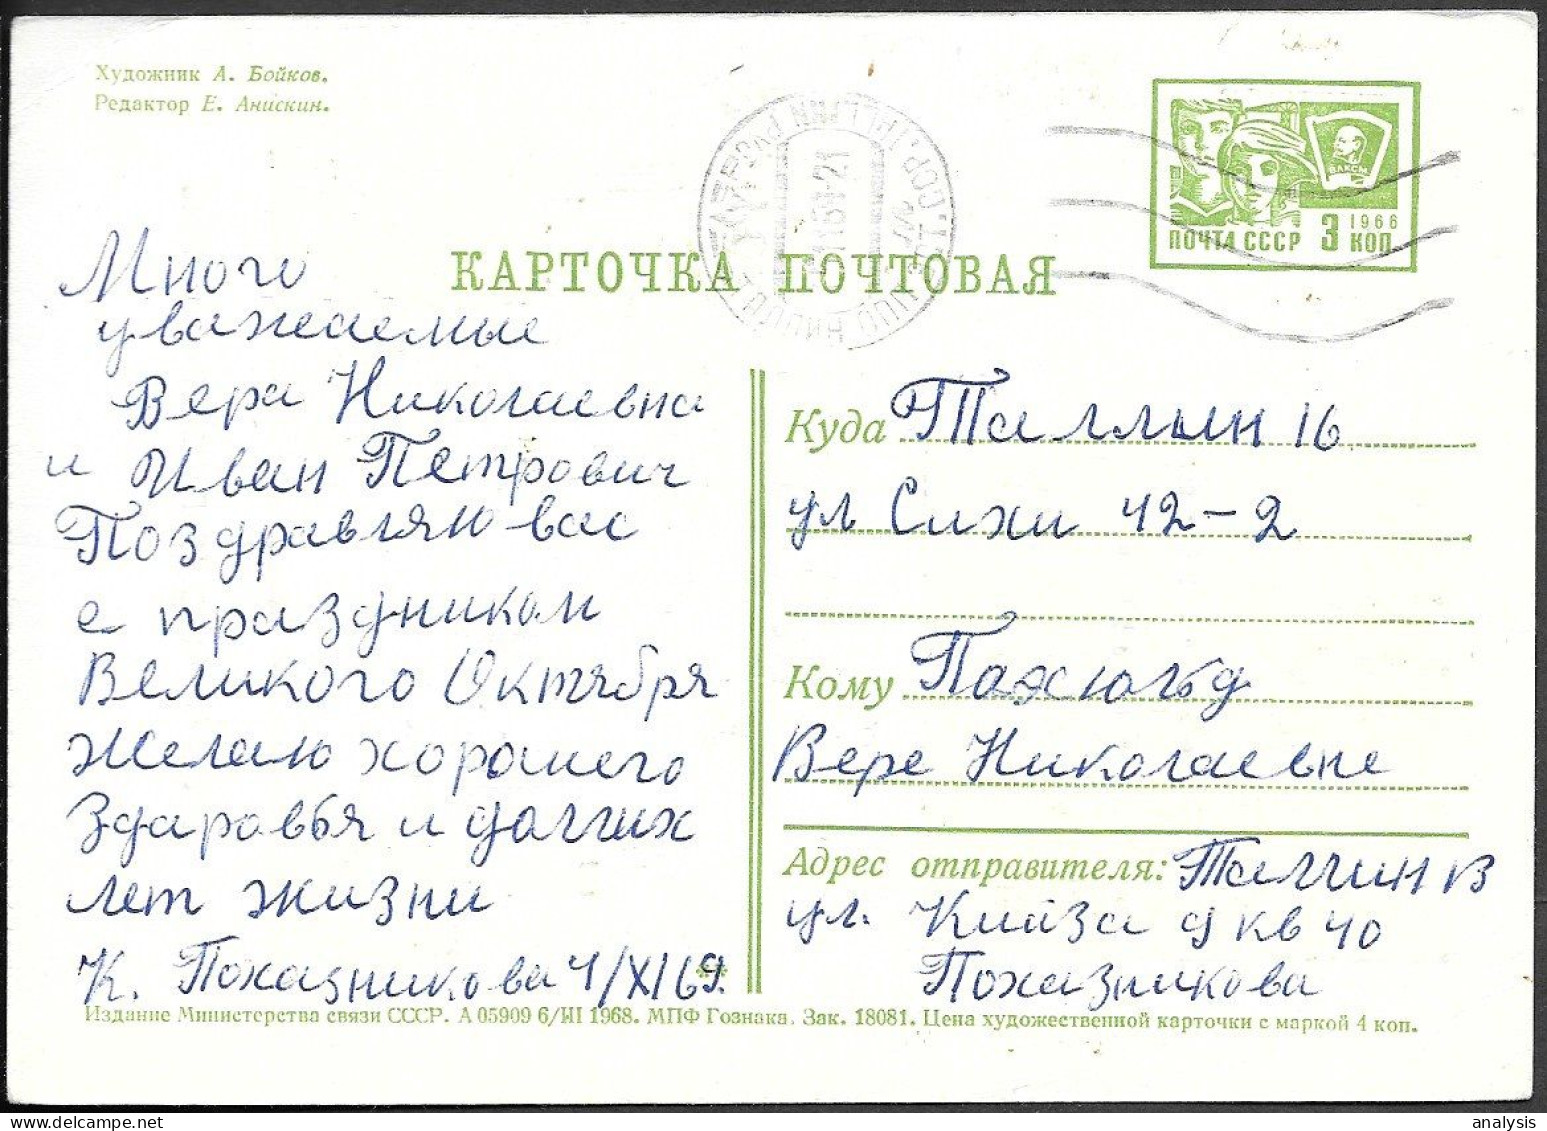 Художник А. Бойков.
Редактор Е. Анискин.
ВЛКСМ
1966
ПОЧТА СССР 3 КОП
КАРТОЧКА ПОЧТОВАЯ
Много
уважаемые
Вера Николаевна
и Иван Петрович
Поздравляю вас
с праздником
Великого Октября
желаю хорошего
здаровья и долгих
лет жизни
К. Показникова 4/XI 69.
Куда Таллин 16
ул Сихи 42-2
Кому Пахюльд
Вере Николаевне
Адрес отправителя: Таллин
ул. кв 40
Показникова
Издание Министерства связи СССР. А 05909 6/III 1968. МПФ Гознака. Зак. 18081. Цена художественной карточки с маркой 4 коп.
analysis